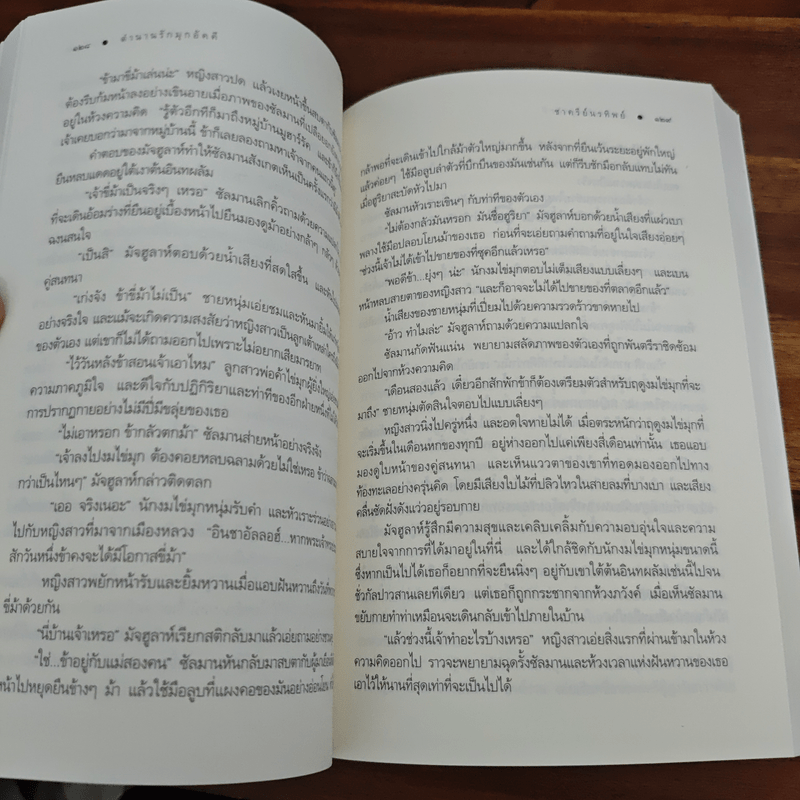 ๑๒๘ • ตำนานรักมุกอัคคี
"ข้ามาขี่ม้าเล่นน่ะ" หญิงสาวปด แล้วเงยหน้าขึ้น
ต้องรีบก้มหน้าลงอย่างเขินอายเมื่อภาพของซัลมานที่เปลือย
อยู่ในห้วงความคิด "รู้ตัวอีกทีก็มาถึงหมู่บ้านมูฮาร์รัค
เจ้าเคยบอกว่ามาจากหมู่บ้านนี้ ข้าก็เลยลองถามหาเจ้าจาก
คำตอบของมัจฮูลาห์ทำให้ซัลมานสังเกตเห็นเป็นครั้งแรก
ยืนหลบแดดอยู่ใต้เงาต้นอินทผลัม
"เจ้าขี่ม้าเป็นจริงๆ เหรอ" ซัลมานเลิกคิ้วถามด้วยความ
ที่จะเดินอ้อมร่างที่ยืนอยู่เบื้องหน้าไปยืนมองดูม้าอย่างกล้าๆ
ฉงนสนใจ
"เป็นสิ" มัจฮูลาห์ตอบด้วยน้ำเสียงที่สดใสขึ้น
คู่สนทนา
"เก่งจัง ข้าขี่ม้าไม่เป็น" ชายหนุ่มเอ่ยชมและหันมายิ้ม
อย่างจริงใจ และแม้จะเกิดความสงสัยว่าหญิงสาวเป็นลูกเต้าเหล่า
ของตัวเอง แต่เขาก็ไม่ได้ถามออกไปเพราะไม่อยากเสียมารยาท
"ไว้วันหลังข้าสอนเจ้าเอาไหม" ลูกสาวพ่อค้าไข่มุกผู้ยิ่งใหญ่
ความภาคภูมิใจ และดีใจกับปฏิกิริยาและท่าทีของอีกฝ่าย
การปรากฏกายอย่างไม่มีปี่มีขลุ่ยของเธอ
"ไม่เอาหรอก ข้ากลัวตกม้า" ซัลมานส่ายหน้าอย่างจริงจัง
"เจ้าลงไปงมไข่มุก ต้องคอยหลบฉลามด้วยไม่ใช่เหรอ
กว่าเป็นไหนๆ" มัจฮูลาห์กล่าวติดตลก
"เออ จริงเนอะ" นักงมไข่มุกหนุ่มรับคำ และหัวเราะร่วน
ไปกับหญิงสาวที่มาจากเมืองหลวง "อินชาอัลลอฮ์...หากพระเจ้า
สักวันหนึ่งข้าคงจะได้มีโอกาสขี่ม้า"
หญิงสาวพยักหน้ารับและยิ้มหวานเมื่อแอบฝันหวานถึงวัน
ขี่ม้าด้วยกัน
"นี่บ้านเจ้าเหรอ" มัจฮูลาห์เรียกสติกลับมาแล้วเอ่ยถาม
"ใช่...ข้าอยู่กับแม่สองคน" ซัลมานหันกลับมาสบตากับผู้มา
หน้าไปหยุดยืนข้างๆ ม้า แล้วใช้มือลูบที่แผงคอของมันอย่างอ่อนโยน
ชาครีย์นรทิพย์ • ๑๒๙
กล้าพอที่จะเดินเข้าไปใกล้ม้าตัวใหญ่มากขึ้น หลังจากที่ยืนเว้นระยะอยู่พักใหญ่
แล้วค่อยๆ ใช้มือลูบลำตัวที่บึกบึนของมันเช่นกัน แต่ก็รีบชักมือกลับแทบไม่ทัน
เมื่อฮูริยาสะบัดหัวไปมา
ซัลมานหัวเราะเขินๆ กับท่าทีของตัวเอง
"ไม่ต้องกลัวมันหรอก มันชื่อฮูริยา" มัจฮูลาห์บอกด้วยน้ำเสียงที่แผ่วเบา
พลางใช้มือปลอบโยนม้าของเธอ ก่อนที่จะเอ่ยถามคำถามที่อยู่ในใจเสียงอ่อยๆ
"ช่วงนี้เจ้าไม่ได้เข้าไปขายของที่ซุคอีกแล้วเหรอ"
"พอดีข้า...ยุ่งๆ น่ะ" นักงมไข่มุกตอบไม่เต็มเสียงแบบเลี่ยงๆ และเบน
หน้าหลบสายตาของหญิงสาว "และก็อาจจะไม่ได้ไปขายของที่ตลาดอีกแล้ว"
น้ำเสียงของชายหนุ่มที่เปี่ยมไปด้วยความรวดร้าวขาดหายไป
"อ้าว ทำไมล่ะ" มัจฮูลาห์ถามด้วยความแปลกใจ
ซัลมานกัดฟันแน่น พยายามสลัดภาพของตัวเองที่ถูกพันตรีราชิดซ้อม
ออกไปจากห้วงความคิด
"เดือนสองแล้ว เดี๋ยวอีกสักพักข้าก็ต้องเตรียมตัวสำหรับฤดูงมไข่มุกที่จะ
มาถึง" ชายหนุ่มตัดสินใจตอบไปแบบเลี่ยงๆ
หญิงสาวนิ่งไปครู่หนึ่ง และอดใจหายไม่ได้ เมื่อตระหนักว่าฤดูงมไข่มุกที่
จะเริ่มขึ้นในเดือนหกของทุกปี อยู่ห่างออกไปแค่เพียงสี่เดือนเท่านั้น เธอแอบ
มองดูใบหน้าของคู่สนทนา และเห็นแววตาของเขาที่ทอดมองออกไปทาง
ท้องทะเลอย่างครุ่นคิด โดยมีเสียงใบไม้ที่ปลิวไหวในสายลมที่บางเบา และเสียง
คลื่นซัดฝั่งดังแว่วอยู่รอบกาย
มัจฮูลาห์รู้สึกมีความสุขและเคลิบเคลิ้มกับความอบอุ่นใจและความ
สบายใจจากการที่ได้มาอยู่ในที่นี่ และได้ใกล้ชิดกับนักงมไข่มุกหนุ่มขนาดนี้
ซึ่งหากเป็นไปได้เธอก็อยากที่จะยืนนิ่งๆ อยู่กับเขาใต้ต้นอินทผลัมเช่นนี้ไปจน
ชั่วกัลปาวสานเลยทีเดียว แต่เธอก็ถูกกระชากจากห้วงภวังค์ เมื่อเห็นซัลมาน
ขยับกายทำท่าเหมือนจะเดินกลับเข้าไปภายในบ้าน
"แล้วช่วงนี้เจ้าทำอะไรบ้างเหรอ" หญิงสาวเอ่ยสิ่งแรกที่ผ่านเข้ามาในห้วง
ความคิดออกไป ราวจะพยายามฉุดรั้งซัลมานและห้วงเวลาแห่งฝันหวานของเธอ
เอาไว้ให้นานที่สุดเท่าที่จะเป็นไปได้